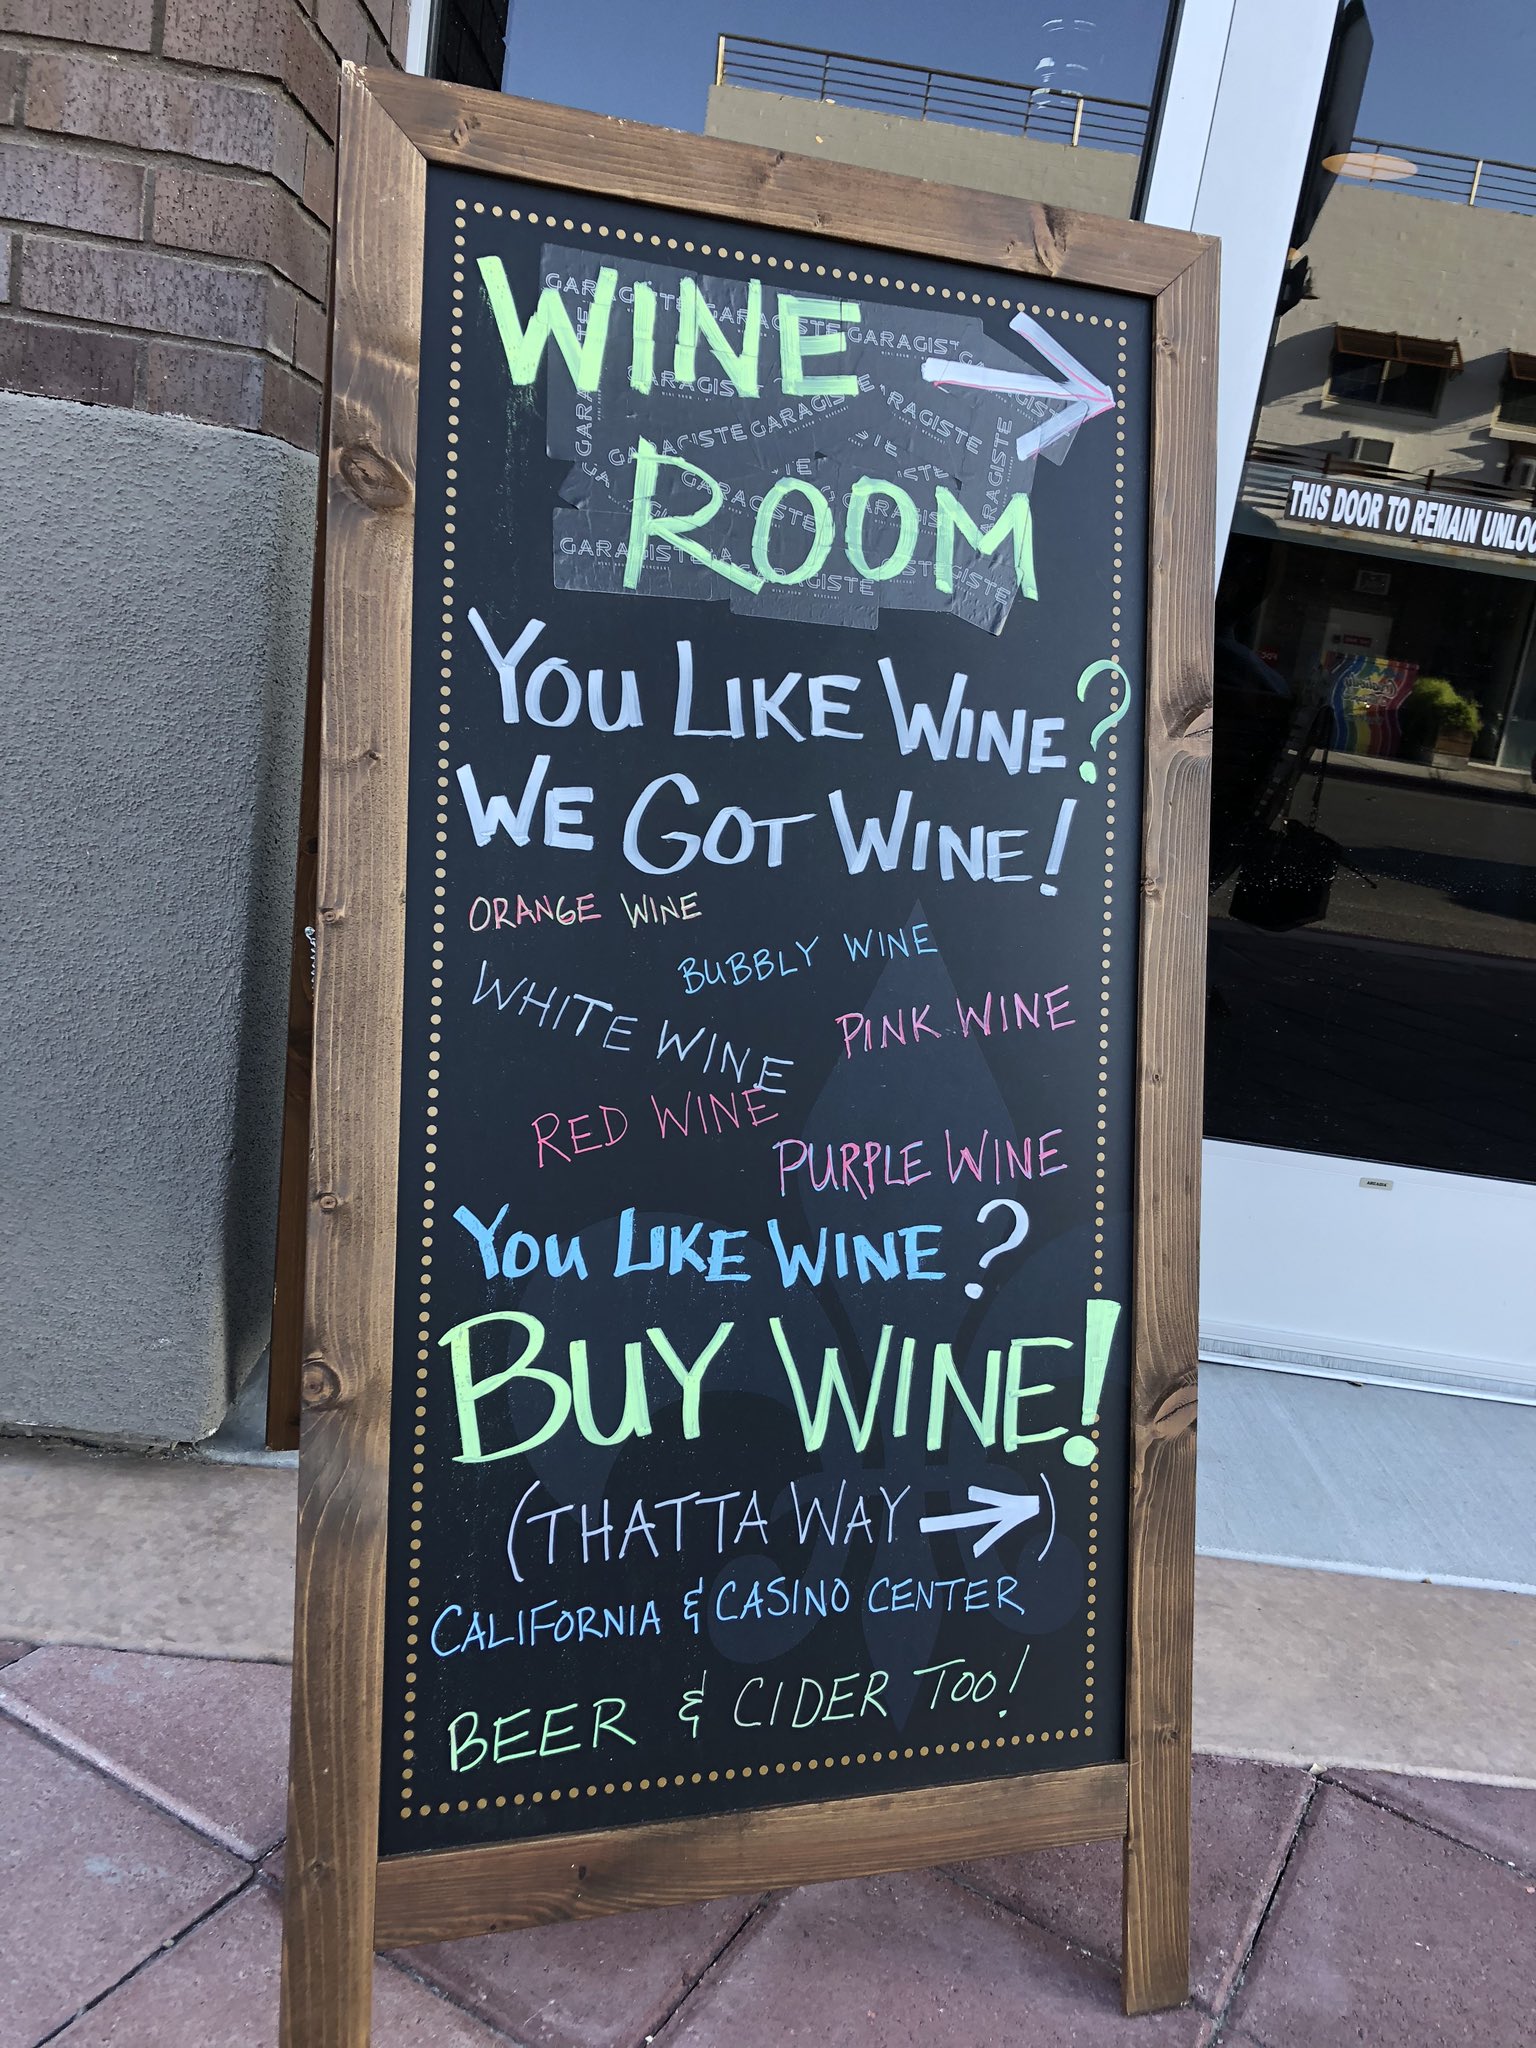 WINE →
ROOM
GARAGISTE
YOU LIKE WINE?
WE GOT WINE!
ORANGE WINE
BUBBLY WINE
WHITE WINE
PINK WINE
RED WINE
PURPLE WINE
YOU LIKE WINE?
BUY WINE!
(THATTA WAY →)
CALIFORNIA & CASINO CENTER
BEER & CIDER TOO!
THIS DOOR TO REMAIN UNLOC